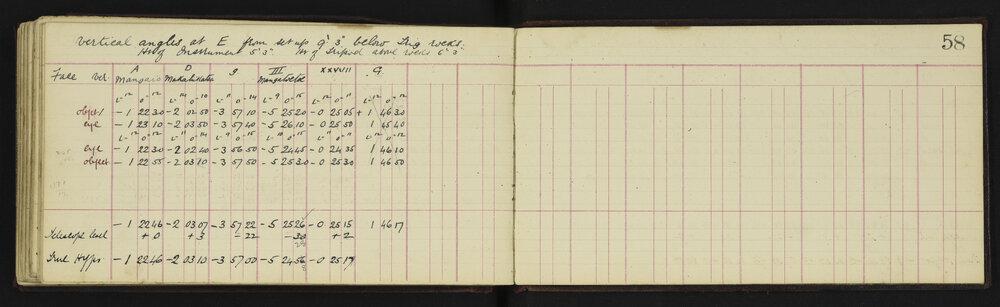 Vertical angles at E from set up 9' 3" below Trig rocks.
Ht of Instrument 5' 3" Ht of Tripod above rocks 6' 3"
58
A D 9 III XXVIII G
Face Ver.
L-12 0-12 L-14 0-10 L-11 0-14 L-9 0-15 L-12 0-11 L-12 0-12
object - 1 22 30 - 2 02 50 - 3 57 10 - 5 25 20 - 0 25 05 + 1 46 30
eye - 1 23 10 - 2 03 50 - 3 57 40 - 5 26 10 - 0 25 50 1 45 40
eye - 1 22 30 - 2 02 40 - 3 56 50 - 5 24 45 - 0 24 35 1 46 10
object - 1 22 55 - 2 03 10 - 3 57 50 - 5 25 30 - 0 25 30 1 46 50
- 1 22 46 - 2 03 07 - 3 57 22 - 5 25 26 - 0 25 15 1 46 17
Telescope level + 0 + 3 - 22 - 30 + 2
True Hyps - 1 22 46 - 2 03 10 - 3 57 00 - 5 24 56 - 0 25 17